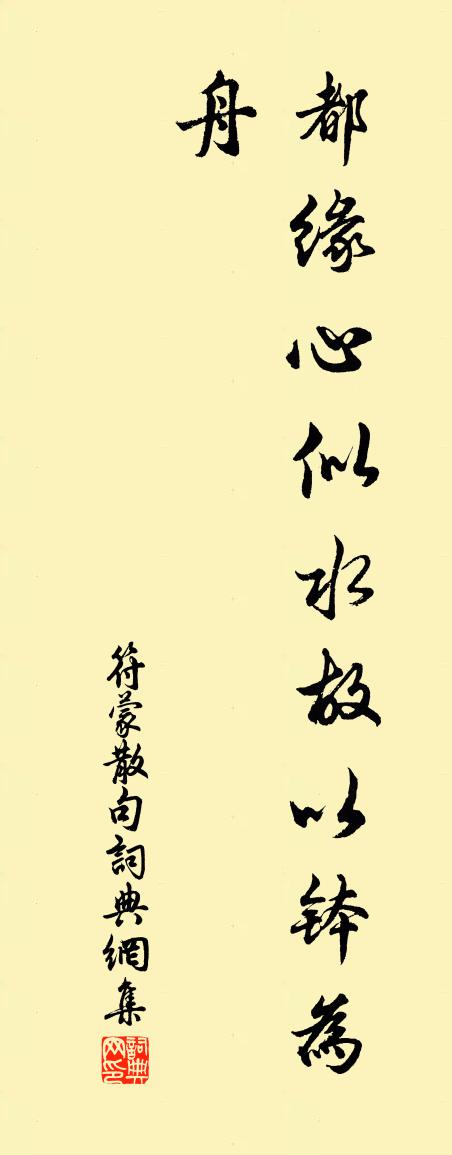 都緣心似水故以鉢為
舟
符蒙散句詞典網集
詞典网印